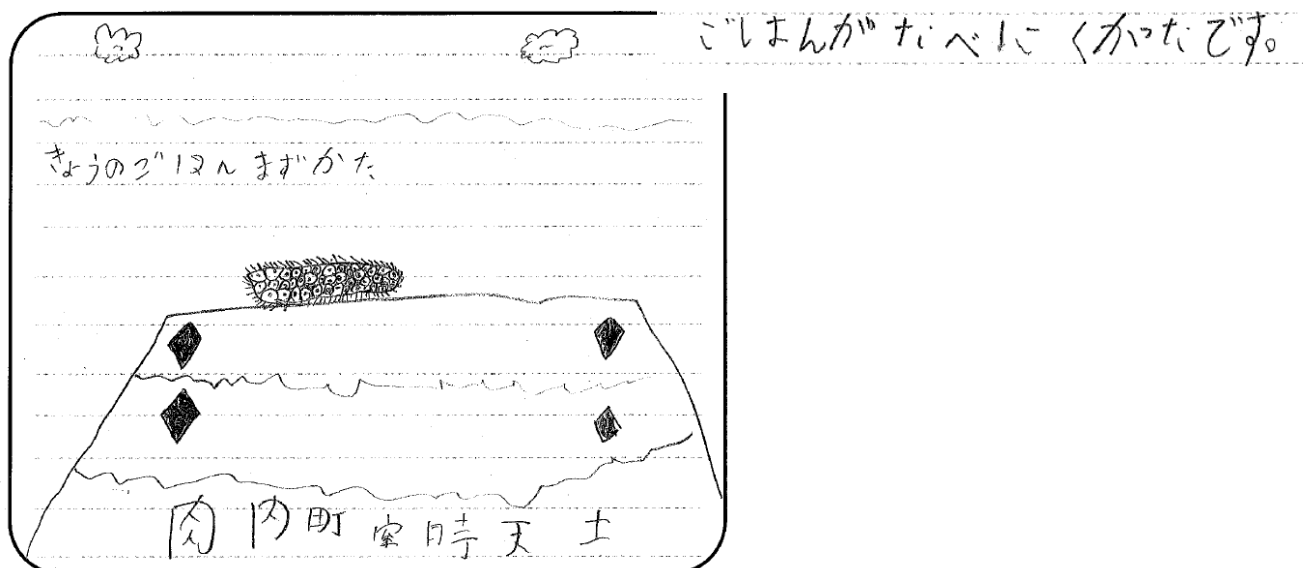 ごはんがたべにくかったです。
きょうのごはんまずかた
肉内町室時天土